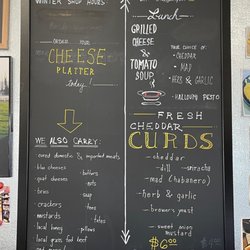 WINTER SHOP HOURS:
ORDER YOUR
CHEESE
PLATTER
today!
WE ALSO CARRY:
- cured domestic & imported meats
- blue cheeses
- butters
- goat cheeses
- nuts
- crackers
- oils
- mustards
- tates
- local honey
- pillows
- local grass fed beef
Lunch
GRILLED
CHEESE
&
TOMATO
SOUP
YOUR CHOICE OF:
- CHEDDAR
- MAD
- HERB & GARLIC
- HALLOUMI PESTO
FRESH
CHEDDAR
CURDS
- cheddar
- dill
- sriracha
- mad (habanero)
- herb & garlic
- brewers yeast
- sweet onion
mustard
$6.00